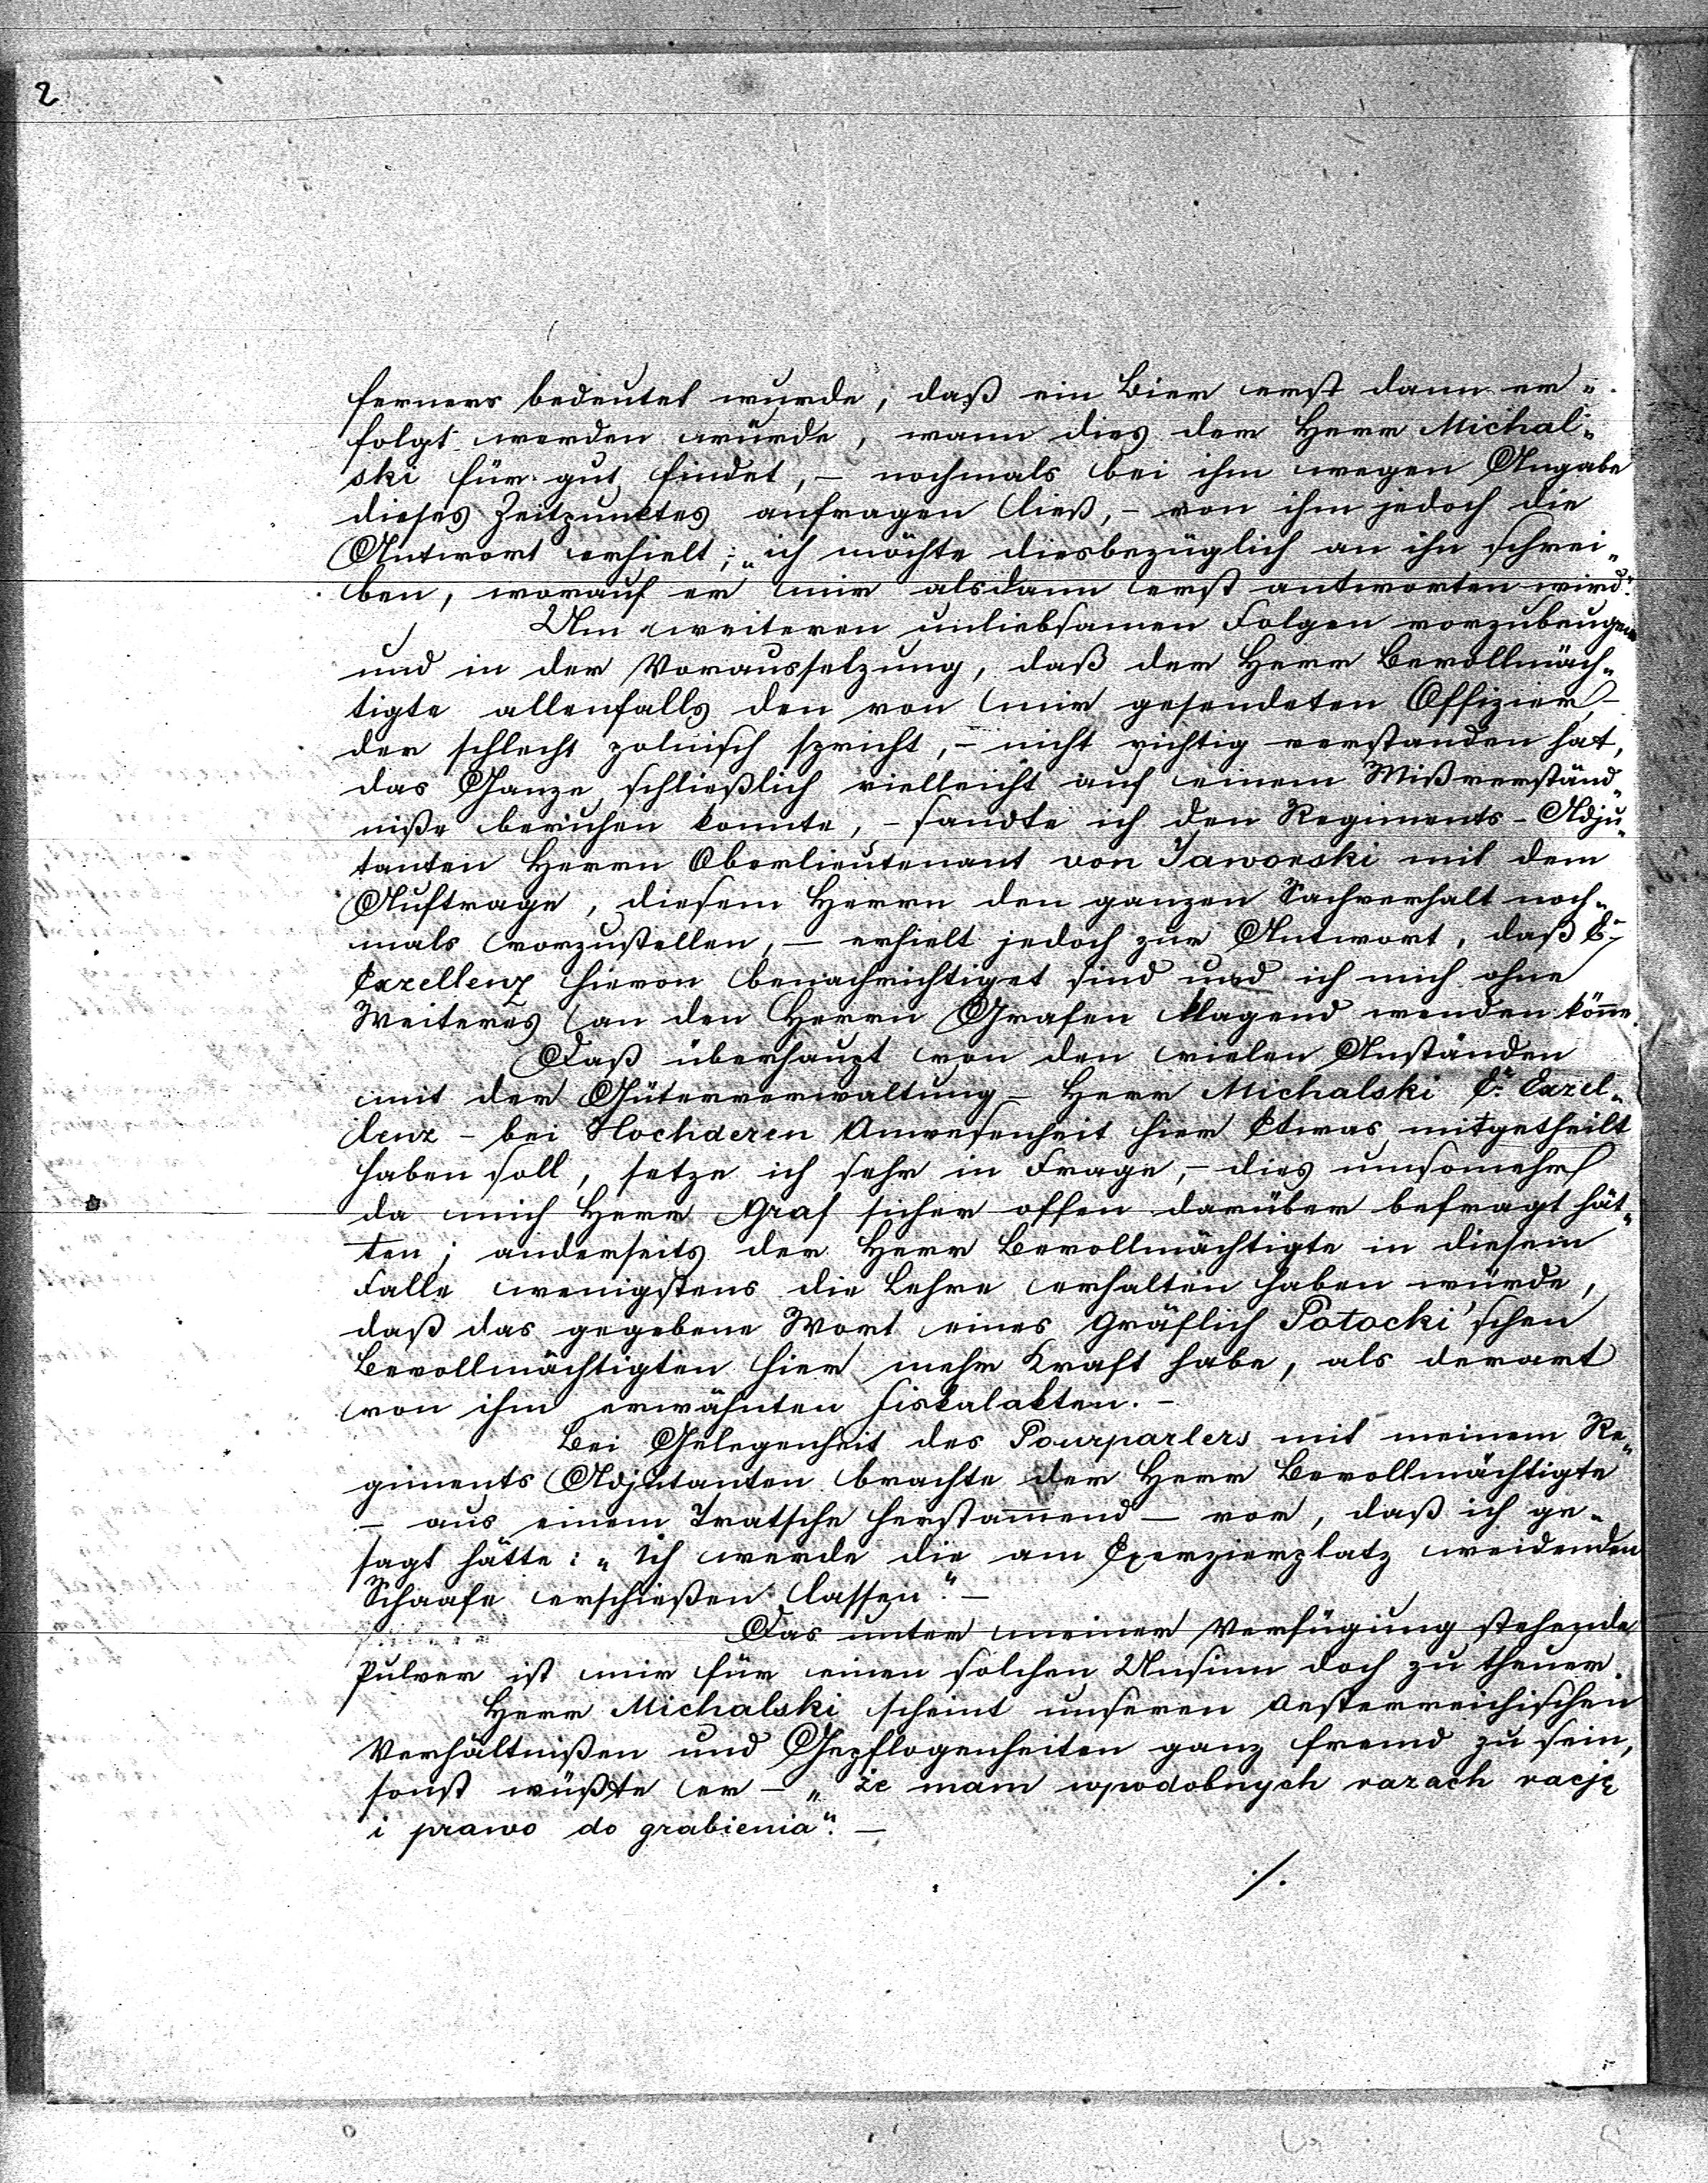 2
ferners bedeutet wurde, daß ein Bier erst dann er„
folgt werden würde, wann dies der Herr Michal„
ski für gut findet, – nochmals bei ihm wegen Angabe
dieses Zeitpunktes anfragen ließ, – von ihm jedoch die
Antwort erhielt; „ich möchte diesbezüglich an ihn schrei„
ben, worauf er mir alsdann erst antworten wird“.
Um weiteren unliebsamen Folgen vorzubeugen
und in der Voraussetzung, daß der Herr Bevollmäch„
tigte allenfalls den von mir gesendeten Offizier –
der schlecht polnisch spricht, – nicht richtig verstanden hat,
das Ganze schließlich vielleicht auf einem Mißverständ„
niße beruhen konnte, – sandte ich den Regiments-Adju„
tanten Herrn Oberlieutenant von Jaworski mit dem
Auftrage, diesem Herrn den ganzen Sachverhalt noch„
mals vorzustellen, – erhielt jedoch zur Antwort, daß
Exzellenz hievon benachrichtiget sind und ich mich ohne
Weiteres an den Herrn Grafen klagend wenden könne.
Daß überhaupt von den vielen Anständen
mit der Güterverwaltung – Herr Michalski Exzel„
lenz – bei Hochderen Anwesenheit hier Etwas mitgetheilt
haben soll, setze ich sehr in Frage, – dies umsomehr
da mich Herr Graf sicher offen darüber befragt hät„
ten; anderseits der Herr Bevollmächtigte in diesem
Falle wenigstens die Lehre erhalten haben würde,
daß das gegebene Wort eines Gräflich Potocki'schen
Bevollmächtigten hier mehr Kraft habe, als derart
von ihm erwähnten Fiskalakten. –
Bei Gelegenheit des Pourparlers mit meinem Re„
giments Adjutanten brachte der Herr Bevollmächtigte
– aus einem Tratsche herstam̄end – vor, daß ich ge„
sagt hätte: „Ich werde die am Exerzierplatz weidenden
Schaafe erschießen lassen“. –
Das unter meiner Verfügung stehende
Pulver ist mir für einen solchen Unsinn doch zu theuer.
Herr Michalski scheint unseren Oesterreichischen
Verhältnißen und Gepflogenheiten ganz fremd zu sein,
sonst wüßte er – „że mam wpodobnych razach rację
i prawo do grabienia“. –
./.